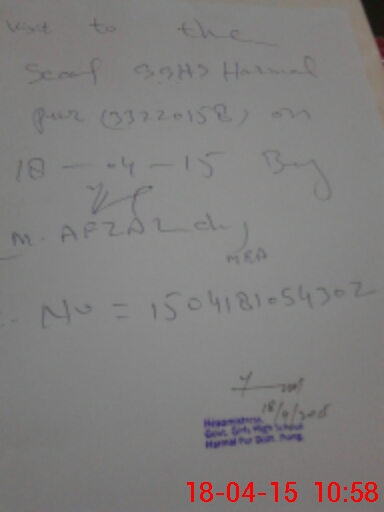 visit to the
Scool GGHS Harmal
pur (33220158) on
18-04-15 By
M. AFZAL
MEA
No = 1504181054302
18/4/2015
Headmistress,
Govt. Girls High School
Harmal Pur Distt. Jhang.
18-04-15 10:58